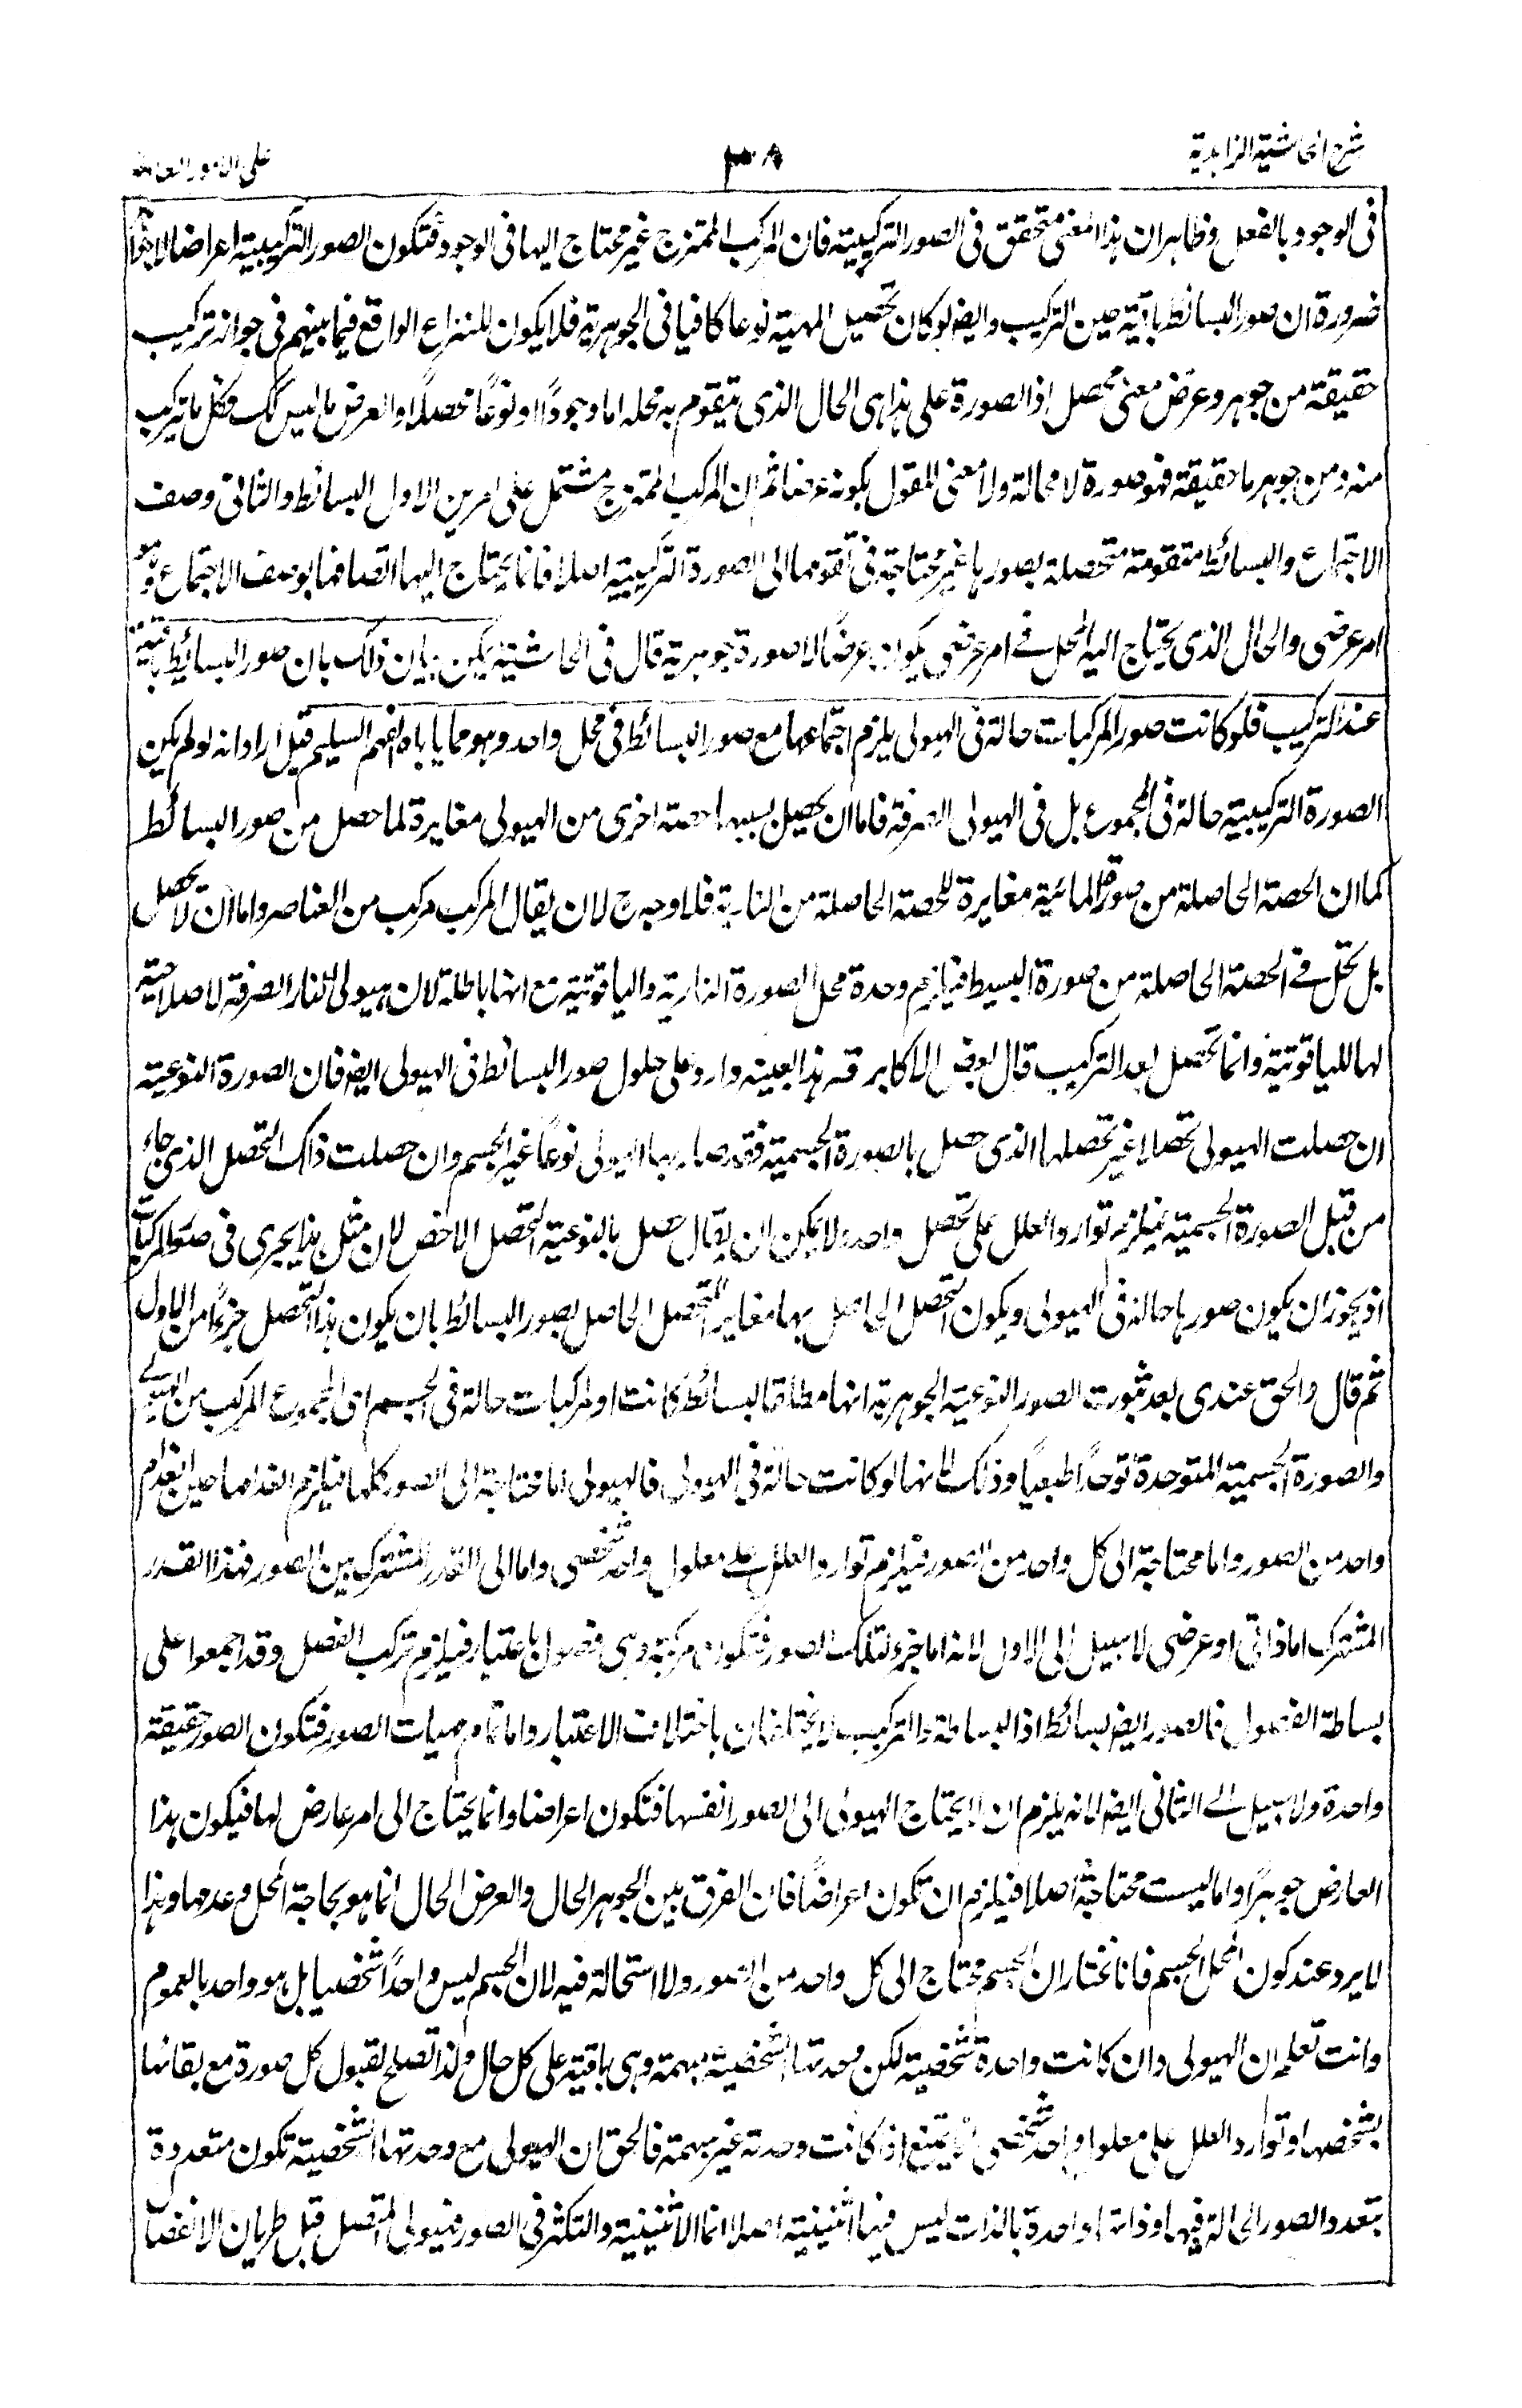 شرح الحاشية الزاهدية
٣٠٨
على الامور العامة
فى الوجود بالفعل وظاهر ان هذا المعنى متحقق فى الصور التركيبية فان المركب الممتزج غير محتاج اليها فى الوجود فتكون الصور التركيبية اعراضا لا جواهر
ضرورة ان صور البسائط باقية حين التركيب وايضا لو كان تحصيل المهية نوعا كافيا فى الجوهرية فلا يكون للنزاع الواقع فيما بينهم فى جواز تركيب
حقيقة من جوهر وعرض معنى محصل اذ الصورة على هذا هى الحال الذى يتقوم به محله اما وجودًا او نوعًا محصلًا والعرض ما ليس كك فكل ما يتركب
منه ومن جوهر ما حقيقة فهو صورة لا محالة ولا معنى للقول بكونه عرضا ثم ان المركب الممتزج مشتمل على امرين الاول البسائط والثانى وصف
الاجتماع والبسائط متقومة متحصلة بصورها غير محتاجة فى تقومها الى الصورة التركيبية اصلا فانما يحتاج اليها اتصافها بوصف الاجتماع وهو
امر عرضى والحال الذى يحتاج اليه المحل فى امر عرضى يكون عرضًا لا صورة جوهرية قال فى الحاشية يمكن بيان ذلك بان صور البسائط باقية
عند التركيب فلو كانت صور المركبات حالة فى الهيولى يلزم اجتماعها مع صور البسائط فى محل واحد وهو مما ياباه الفهم السليم قيل اراد انه لو لم يكن
الصورة التركيبية حالة فى المجموع بل فى الهيولى الصرفة فاما ان يحصل بسببها حصة اخرى من الهيولى مغايرة لما حصل من صور البسائط
كما ان الحصة الحاصلة من صورة المائية مغايرة للحصة الحاصلة من النارية فلا وجه ح لان يقال المركب مركب من العناصر واما ان لا يحصل
بل تحل فى الحصة الحاصلة من صورة البسيط فيلزم وحدة محل الصورة النارية والياقوتية مع انها باطلة لان هيولى النار الصرفة لا صلاحية
لها للياقوتية وانما تحصل بعد التركيب قال بعض الاكابر قه هذا بعينه وارد على حلول صور البسائط فى الهيولى ايضا فان الصورة النوعية
ان حصلت الهيولى تحصلا غير تحصلها الذى حصل بالصورة الجسمية فقد صار بها الهيولى نوعًا غير الجسم وان حصلت ذاك التحصل الذى جاء
من قبل الصورة الجسمية فيلزم توارد العلل على تحصل واحد ولا يمكن ان يقال حصل بالنوعية التحصل الاخص لان مثل هذا يجرى فى صور المركبات
اذ يجوز ان يكون صورها حالة فى الهيولى ويكون التحصل الحاصل بها مغايرا للتحصل الحاصل بصور البسائط بان يكون هذا التحصل جزءًا من الاول
ثم قال والحق عندى بعد ثبوت الصور النوعية الجوهرية انها مطلقا لبسائط كانت او لمركبات حالة فى الجسم اى المجموع المركب من الهيولى
والصورة الجسمية المتوحدة توحدًا طبعيًا وذلك لانها لو كانت حالة فى الهيولى فالهيولى اما محتاجة الى الصور كلها فيلزم انعدامها حين انعدام
واحد من الصور واما محتاجة الى كل واحد من الصور فيلزم توارد العلل على معلول واحد شخصى واما الى القدر المشترك بين الصور فهذا القدر
المشترك اما ذاتى او عرضى لا سبيل الى الاول لانه اما جزء لتلك الصور فتكون مركبة وهى فصول باعتبار فيلزم تركب الفصل وقد اجمعوا على
بساطة الفصول فالصور ايضا بسائط اذ البساطة والتركيب لا يختلفان باختلاف الاعتبار واما تمام مهيات الصور فتكون الصور حقيقة
واحدة ولا سبيل الى الثانى ايضا لانه يلزم ان لا يحتاج الهيولى الى الصور انفسها فتكون اعراضا وانما يحتاج الى امر عارض لها فيكون هذا
العارض جوهرًا واما ليست محتاجة اصلا فيلزم ان تكون اعراضًا فان الفرق بين الجوهر الحال والعرض الحال انما هو بحاجة المحل وعدمها وهذا
لا يرد عند كون المحل الجسم فانا نختار ان الجسم محتاج الى كل واحد من الصور ولا استحالة فيه لان الجسم ليس واحدًا شخصيا بل هو واحد بالعموم
وانت تعلم ان الهيولى وان كانت واحدة شخصية لكن وحدتها الشخصية مبهمة وهى باقية على كل حال ولذا تصلح لقبول كل صورة مع بقائها
بشخصها وتوارد العلل على معلول واحد شخصى انما يمتنع اذا كانت وحدته غير مبهمة فالحق ان الهيولى مع وحدتها الشخصية تكون متعددة
بتعدد الصور الحالة فيها وذاتها واحدة بالذات ليس فيها اثنينية اصلا انما الاثنينية والتكثر فى الصور فهيولى المتصل قبل طريان الانفصال